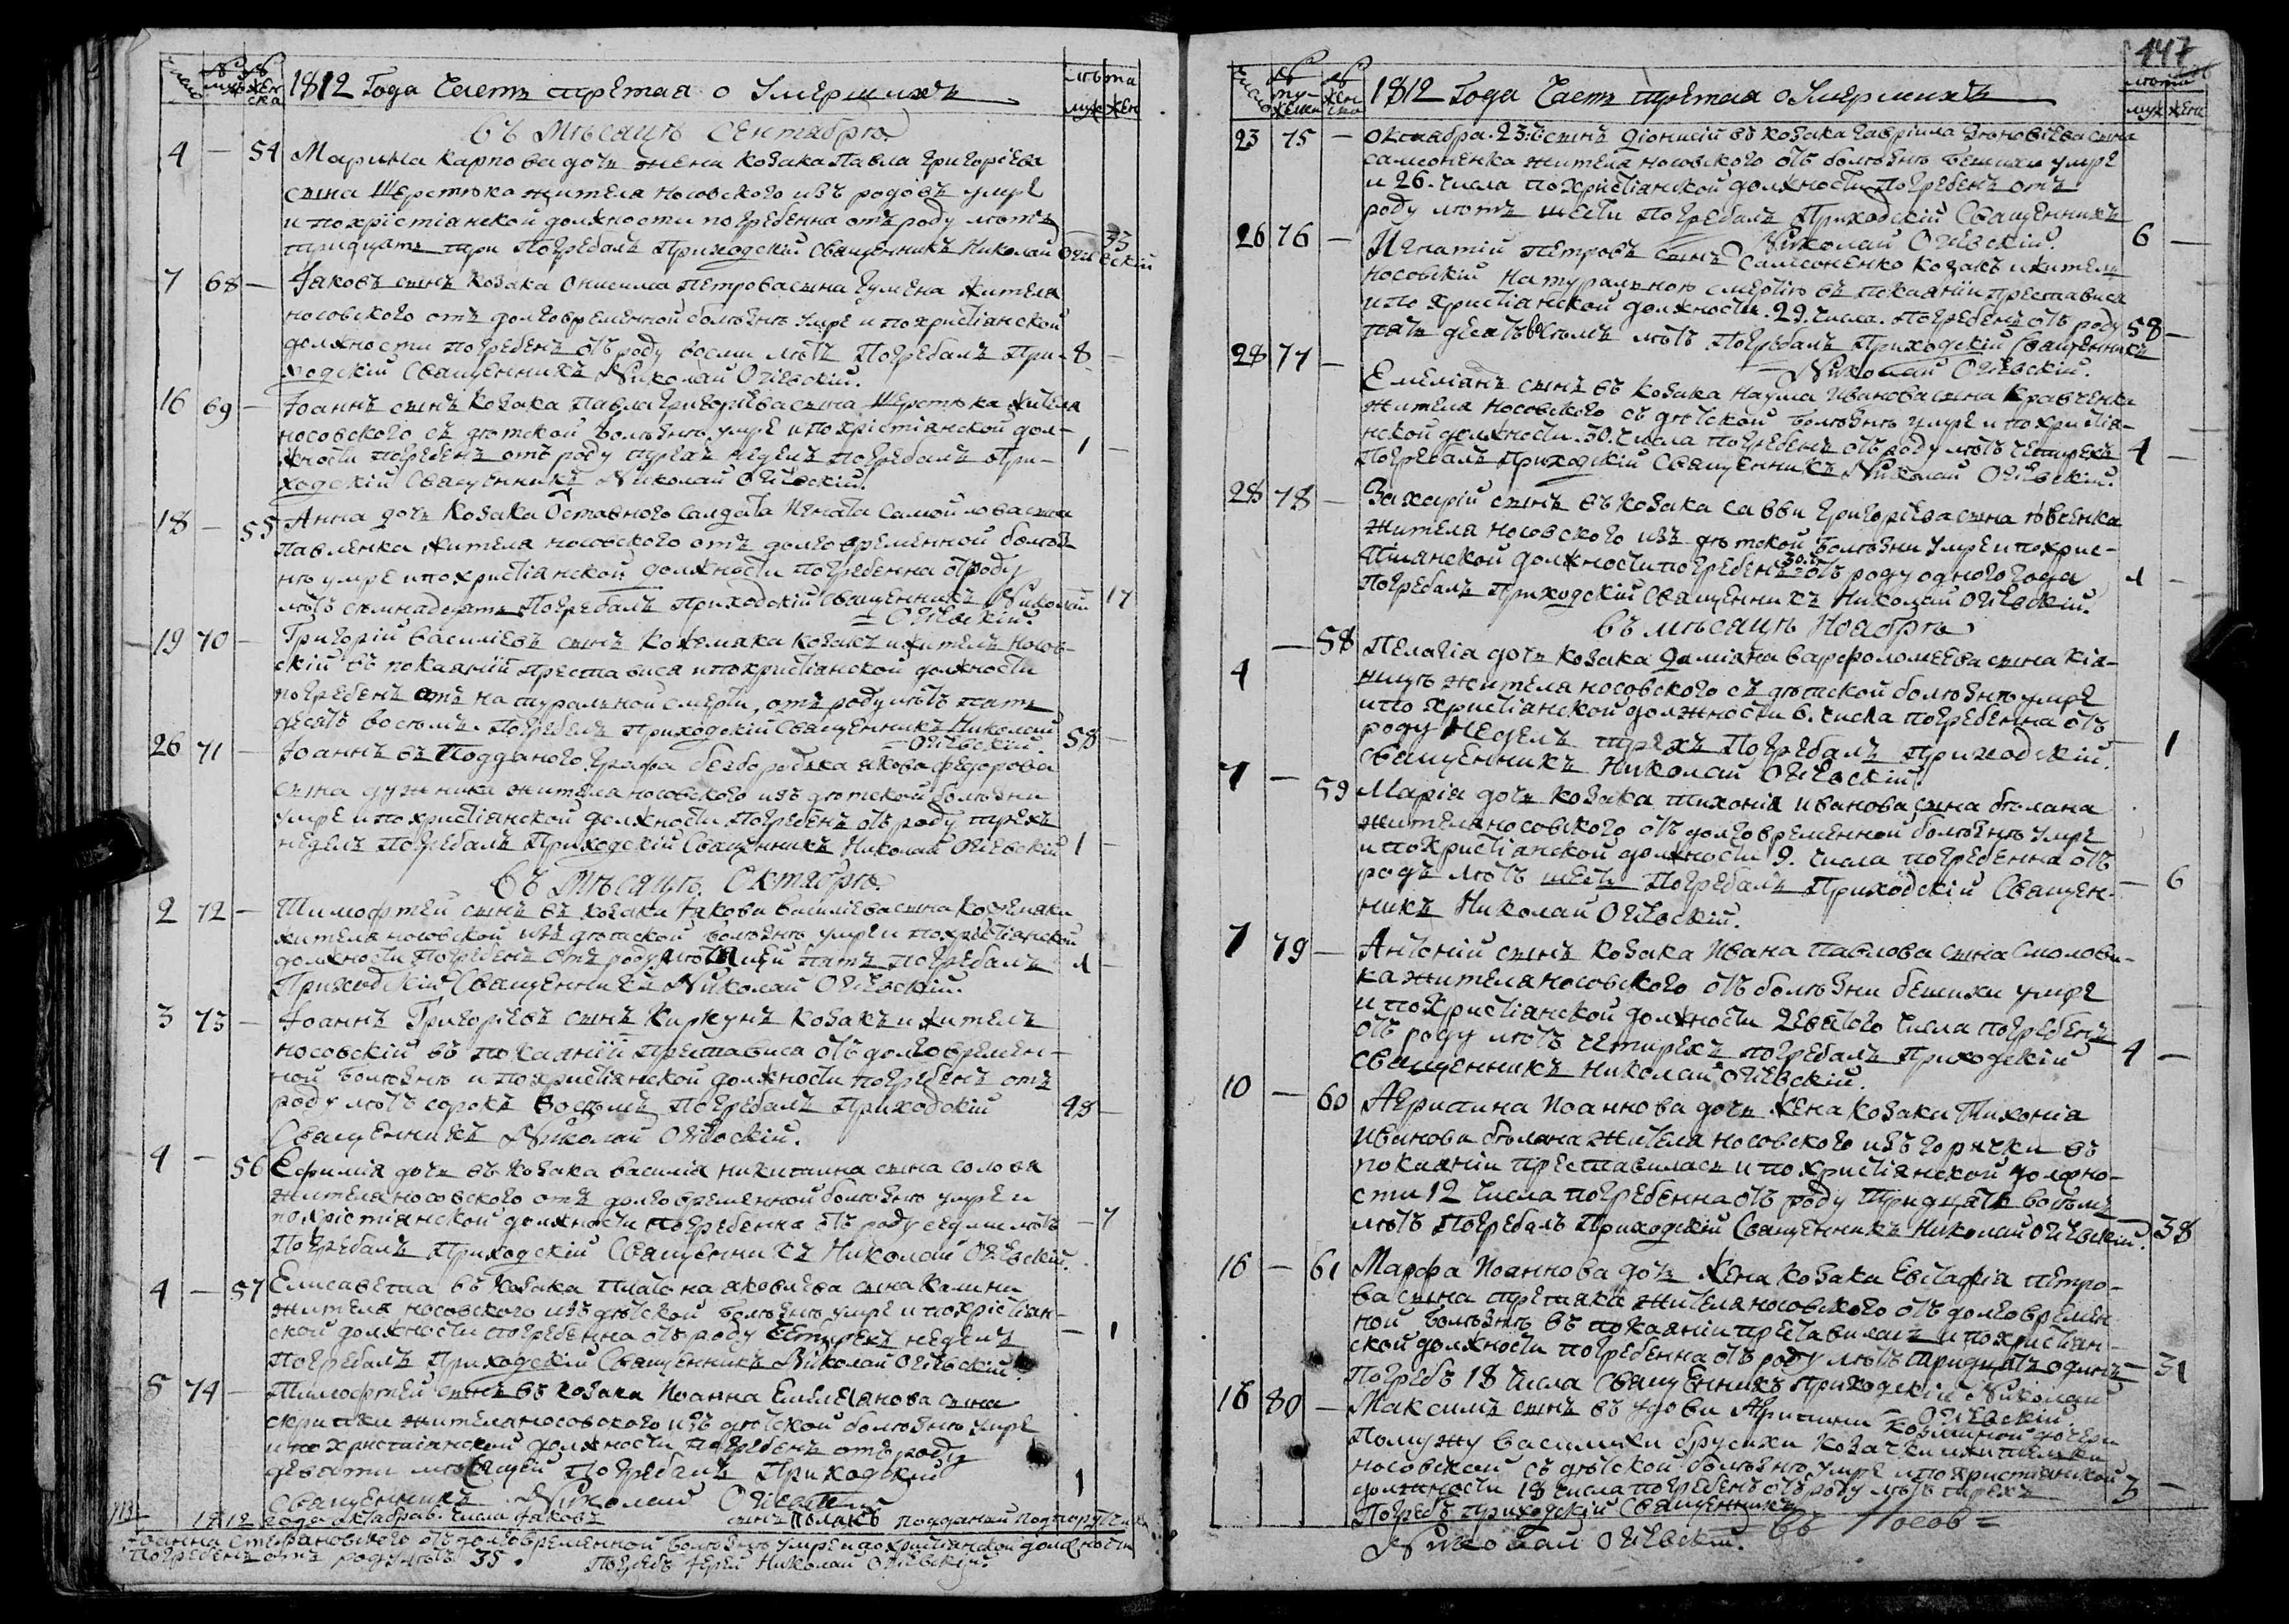 1812 Года Часть третая о Умершихъ
въ Мѣсяцѣ Сентябрѣ
4 — 54 Марина Карпова дочь жена козака Павла Григоріева
сына Шерстюка жителя носовского изъ родовъ умре
и по христіанской должности погребенна отъ роду лѣтъ
тридцать три Погребалъ Приходскій Священникъ Николай Огіевскій 33
7 68 — Іаковъ сынъ козака Онисима Петрова сына Гумена жителя
носовского отъ долговременной болѣзнѣ умре и по христіанской
должности погребенъ отъ роду восми лѣтъ Погребалъ При- 8 —
ходскій Священникъ Николай Огіевскій.
16 69 — Іоаннъ сынъ козака Павла Григоріева сына Шерстюка жителя
носовского съ дѣтской болѣзнѣ умре и по христіанской дол-
жности погребенъ отъ роду трехъ недель погребалъ При- 1 —
ходскій Священникъ Николай Огіевскій.
18 — 55 Анна дочь козака Отставного Салдата Игната Самойлова сына
Павленка жителя носовского отъ долговременной болѣз-
нѣ умре и по христіанской должности погребенна отроду
лѣтъ семнадцать Погребалъ Приходскій Священникъ Николай 17
Огіевскій.
19 70 — Григорій Василіевъ сынъ Кожемяка козакъ и житель носов-
скій въ покаяніи преставися и по христіанской должности
погребенъ отъ натуральной смерти, отъ роду лѣтъ пять
десятъ восѣмъ. Погребалъ Приходскій Священникъ Николай 58 —
Огіевскій.
26 71 — Іоаннъ въ Подданого Графа безбородка Якова Федорова
сына жителя носовского изъ дѣтской болѣзни
умре и по христіанской должности Погребенъ отъ роду трехъ
недель Погребалъ Приходскій Священникъ Николай Огіевскій 1 —
Въ Мѣсяцѣ Октябрѣ
2 72 — Тимофтей сынъ въ козака Іякова Василіева сына Кожемяки
жителя носовской изъ дѣтской болѣзнѣ умре и по христіанской
должности Погребенъ отъ роду мѣсяцей пять погребалъ 1 —
Приходскій Священникъ Николай Огіевскій.
3 73 — Іоаннъ Григоріевъ сынъ Киркунъ козакъ и житель
носовскій въ покаяніи преставися отъ долговремен-
ной болѣзнѣ и по христіанской должности погребенъ отъ
роду лѣтъ сорокъ восѣмъ Погребалъ Приходскій 48 —
Священникъ Николай Огіевскій.
4 — 56 Ефимія дочь въ козака Василія Никитина сына соловя
жителя носовского отъ долговременной болѣзнѣ умре и
по христіанской должности погребенна отъ роду седми лѣтъ — 7
Погребалъ Приходскій Священникъ Николай Огіевскій.
4 — 57 Елисавета въ козака Платона Яковлева сына Калини
жителя носовского изъ дѣтской болѣзнѣ умре и по христіан-
ской должности погребенна отъ роду четырехъ недель — 1
Погребалъ Приходскій Священникъ Николай Огіевскій
5 74 — Тимофтей сынъ въ козака Иоанна Емелиянова сына
скрипки жителя носовского изъ дѣтской болѣзнѣ умре
и по христіанской должности погребенъ отъ роду
девяти мѣсяцей Погребалъ Приходскій 1
Священникъ Николай Огіевскій
1812 года Октября Числа Іаковъ сынъ подданый подпоручика
Іоанна Стефановского отъ долговременной болѣзнѣ умре и по христіанской должности
Погребенъ отъ роду лѣтъ 35. Погребъ Іерей Николай Огіевскій.
447
1812 Года Часть третая о Умершихъ
23 75 — Октября 23. сынъ Діонисій въ козака Гавріила Зѣновіева сына
самсоненка жителя носовского отъ болѣзнѣ бешихи умре
и 26. числа по христіанской должности Погребенъ отъ
роду лѣтъ шести Погребалъ Приходскій Священникъ
Николай Огіевскій. 6 —
26 76 — Игнатій Петровъ сынъ Самсоненко козакъ и житель
носовскій натуральною смертію въ покаяніи преставися
и по христіанской должности. 29. числа. погребенъ отъ роду 58 —
пять десятъ восѣмъ лѣтъ Погребалъ Приходскій Священникъ
Николай Огіевскій.
28 77 — Емеліанъ сынъ въ козака Наума Иванова сына Кравченка
жителя носовского съ дѣтской болѣзнѣ умре и по христіа-
нской должности. 30. числа погребенъ отъ роду лѣтъ четырехъ 4 —
Погребалъ Приходскій Священникъ Николай Огіевскій.
28 78 — Захарій сынъ въ козака Саввы Григоріева сына
жителя носовского изъ дѣтской болѣзни умре и по хрис-
тіянской должности погребенъ 30. ч. отъ роду одного года 1 —
Погребалъ Приходскій Священникъ Николай Огіевскій.
Въ мѣсяцѣ Ноябрѣ
4 — 58 Пелагія дочь козака Даміяна Варфоломеева сына Кія-
ницѣ жителя носовского съ дѣтской болѣзнѣ умре
и по христіанской должности 6. числа погребенна отъ
роду недель трехъ Погребалъ Приходскій — 1
Священникъ Николай Огіевскій.
7 — 59 Марія дочь козака Тихонія Иванова сына бѣлана
жителя носовского отъ долговременной болѣзнѣ умре
и по христіанской должности 9. числа погребенна отъ
родѣ лѣтъ шесть Погребалъ Приходскій Священ- — 6
никъ Николай Огіевскій.
7 79 — Антоній сынъ козака Ивана Павлова сына Смолови-
ка жителя носовского отъ болѣзни бешихи умре
и по христіанской должности девятого числа погребенъ
отъ роду лѣтъ четирехъ погребалъ Приходскій 4 —
Священникъ Николай Огіевскій.
10 — 60 Агрипина Иоаннова дочь жена козака Тихонія
Иванова бѣлана жителя носовского изъ горячки въ
покаяніи преставилась и по христіанской должно-
сти 12 числа погребенна отъ роду тридцять восѣмъ
лѣтъ Погребалъ Приходскій Священникъ Николай Огіевскій. 38
16 — 61 Марфа Иоаннова дочь жена козака Евстафія Петро-
ва сына третяка жителя носовского отъ долговремен
ной болѣзнѣ въ покаяніи преставилась и по христіан-
ской должности погребенна отъ роду лѣтъ тридцать одинъ — 31
Погребъ 18 числа Священникъ Приходскій Николай
Огіевскій.
16 80 — Максимъ сынъ въ удови Агрипини Козминой дочери
По мужу Василихи брусихи козачки и жителки
носовской съ дѣтской болѣзнѣ умре и по христіанской
должности 18 числа погребенъ отъ роду лѣтъ трехъ 3 —
Погребъ Приходскій Священникъ
Николай Огіевскій. Въ Носов=